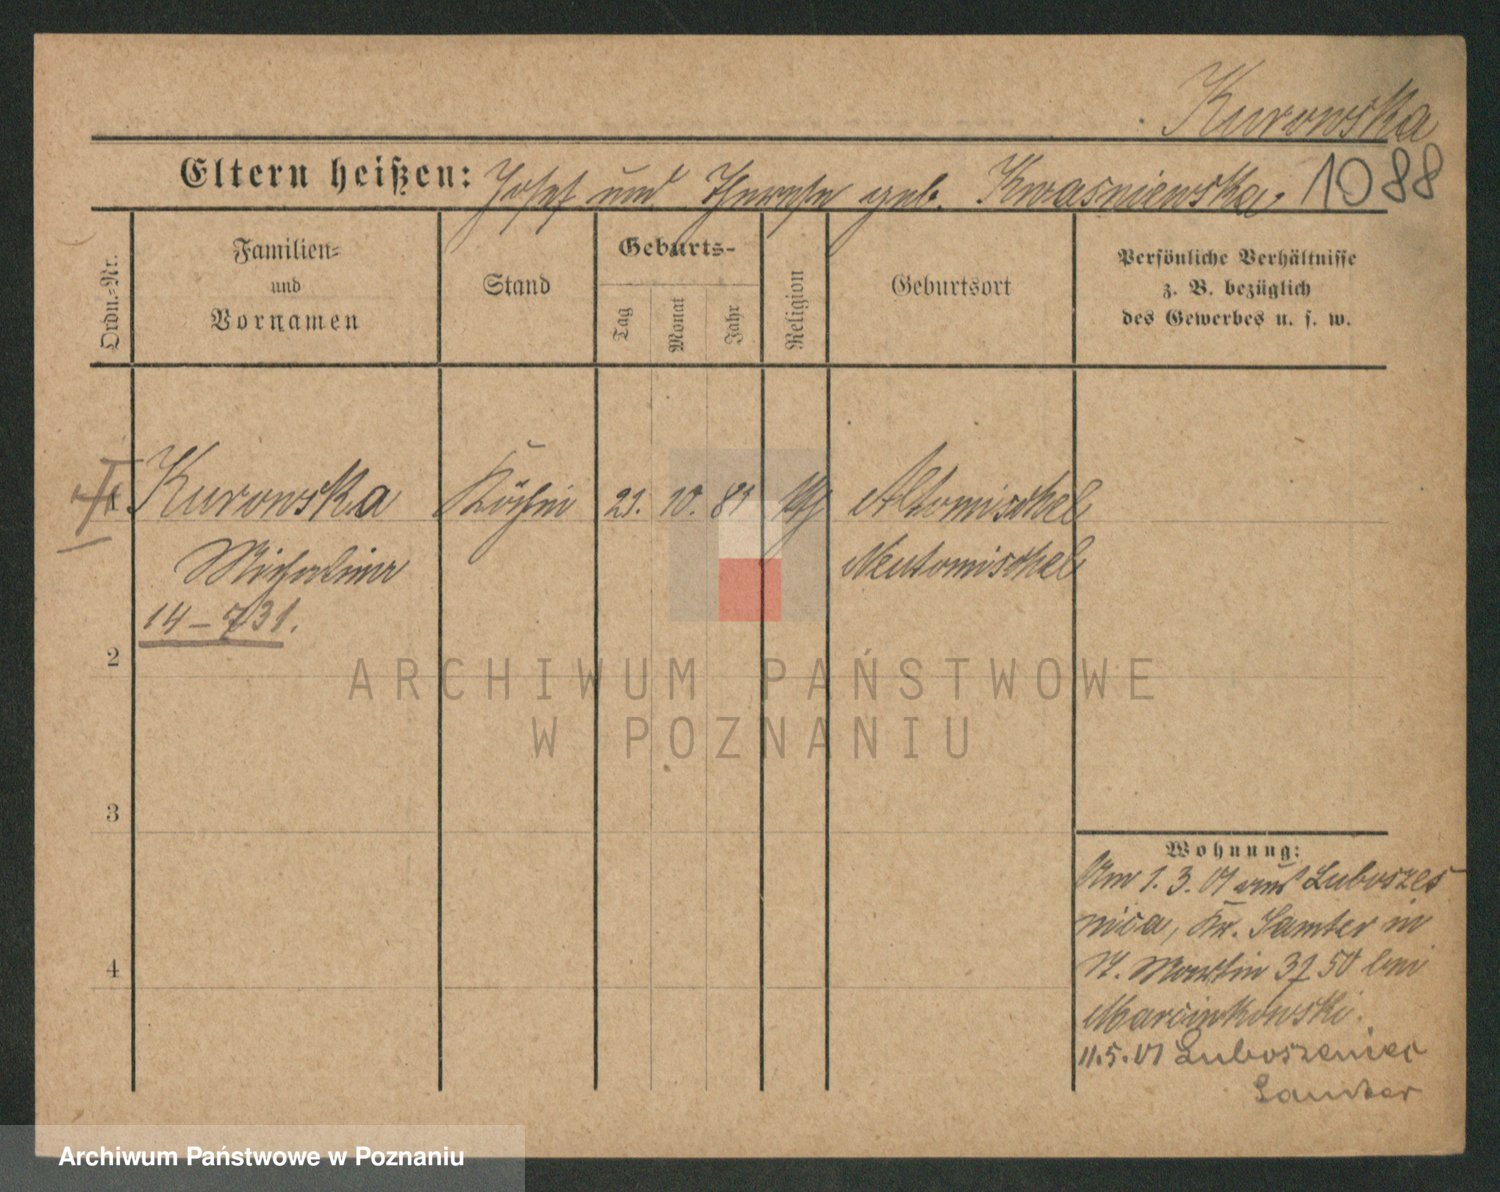 Kurowska
Eltern heißen: Josef und Therese geb. Kwasniewska. 1088
Ordn.-Nr.
Familien-
und
Vornamen
Stand
Geburts-
Tag
Monat
Jahr
Religion
Geburtsort
Persönliche Verhältnisse
z. B. bezüglich
des Gewerbes u. s. w.
1 Kurowska Köchin 21. 10. 81 kth Altomischel
Michalina Neutomischel
14-731.
2
3
4
Wohnung:
Am 1.3.01 aus Luboszes
nica, Kr. Samter in
St. Martin 37 50 bei
Marcinkowski.
11.5.01 Luboszeniec
Samter
ARCHIWUM PAŃSTWOWE
W POZNANIU
Archiwum Państwowe w Poznaniu